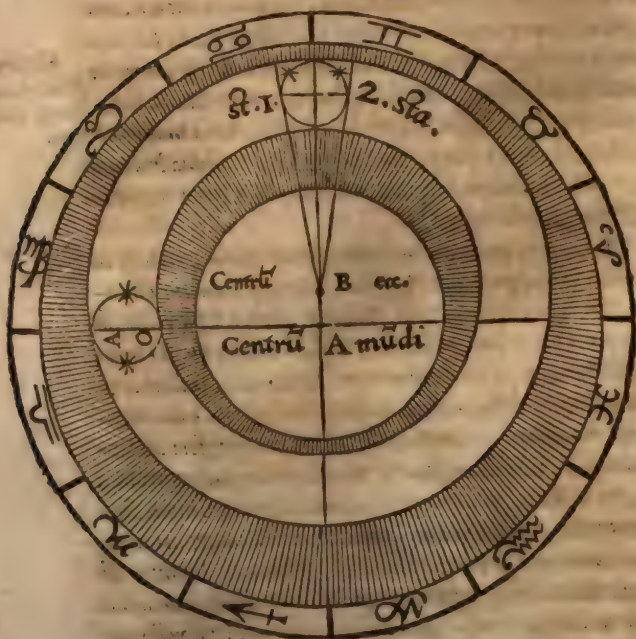 ♋ ♊
♌ ♉
♍ ♈
♎ ♓
♏ ♒
♐ ♑
st. 1. 2. sta.
Centrũ B ecc.
Centrũ A mũdi
A O